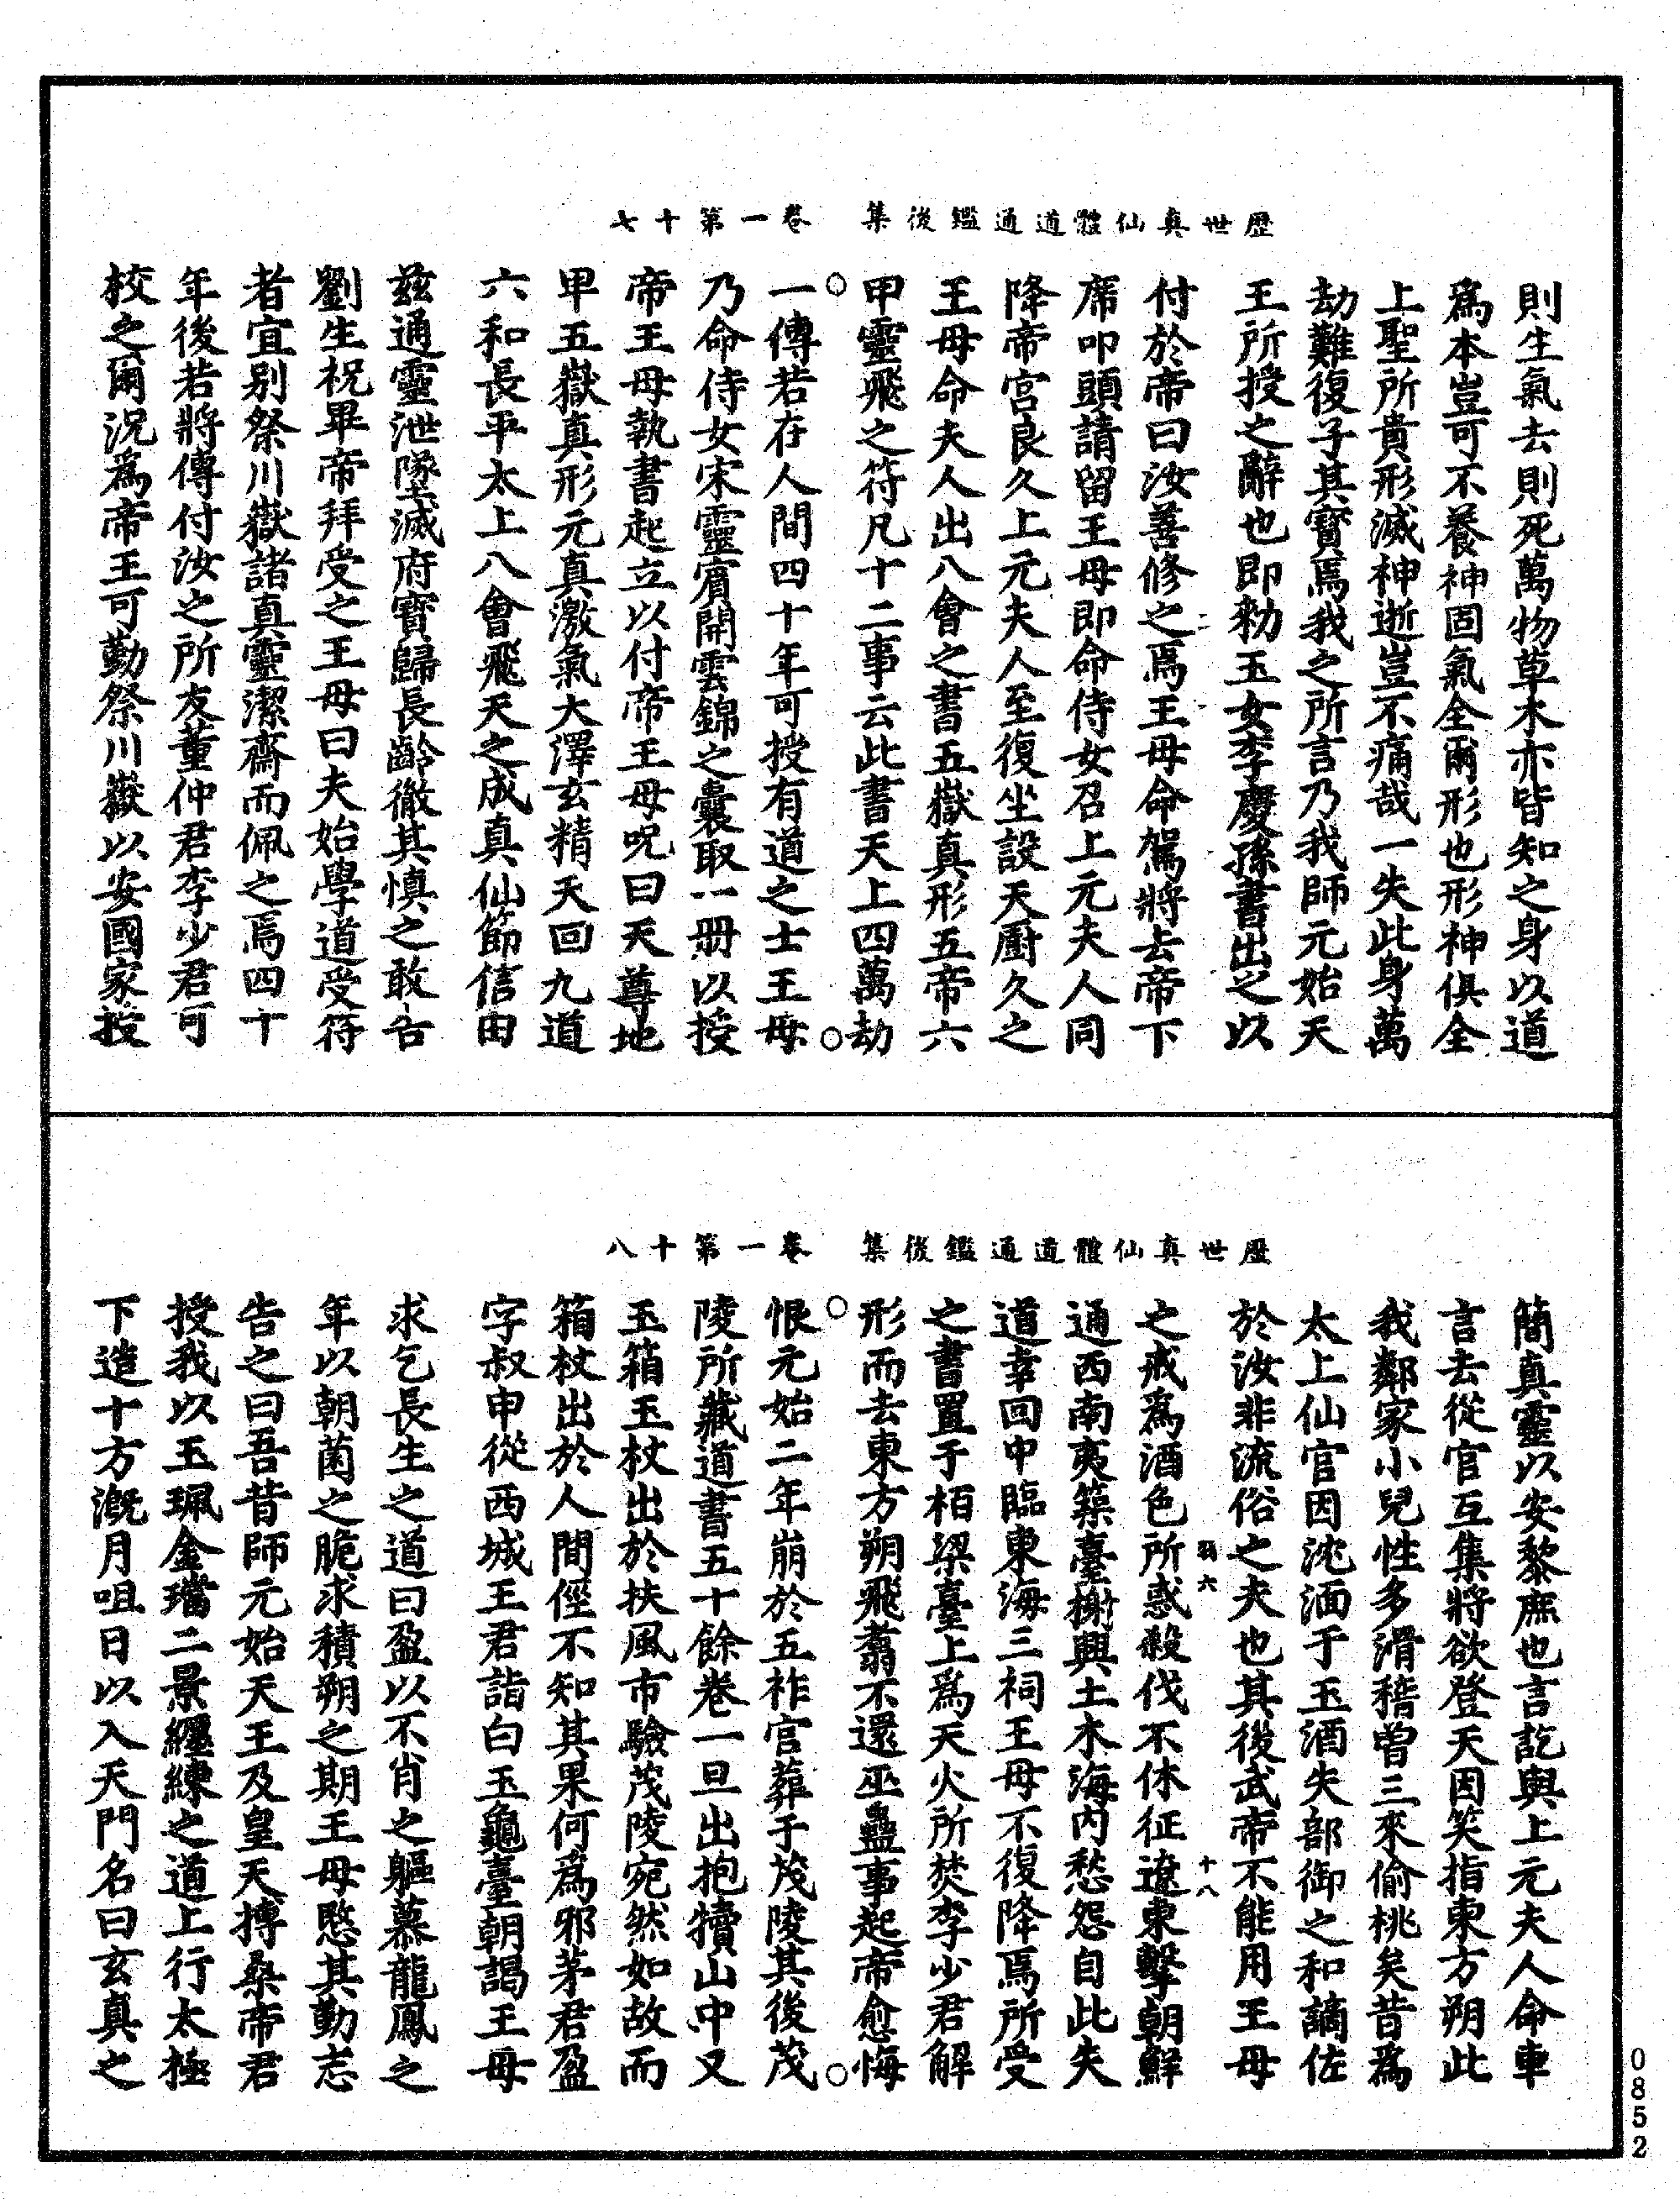 歷世真仙體道通鑑後集　卷一第十七
則生氣去則死萬物草木亦皆知之身以道
爲本豈可不養神固氣全爾形也形神俱全
上聖所貴形滅神逝豈不痛哉一失此身萬
劫難復子其寶焉我之所言乃我師元始天
王所授之辭也即勑玉女李慶孫書出之以
付於帝曰汝善修之焉王母命駕將去帝下
席叩頭請留王母即命侍女召上元夫人同
降帝宮良久上元夫人至復坐設天厨久之
王母命夫人出八會之書五嶽真形五帝六
甲靈飛之符凡十二事云此書天上四萬劫
一傳若在人間四十年可授有道之士王母
乃命侍女宋靈賓開雲錦之囊取一册以授
帝王母執書起立以付帝王母呪曰天尊地
卑五嶽真形元真激氣大澤玄精天回九道
六和長平太上八會飛天之成真仙節信由
茲通靈泄墜滅府寶歸長齡徹其慎之敢告
劉生祝畢帝拜受之王母曰夫始學道受符
者宜别祭川嶽諸真靈潔齋而佩之焉四十
年後若將傳付汝之所友董仲君李少君可
授之爾況爲帝王可勤祭川嶽以安國家投
歷世真仙體道通鑑後集　卷一第十八
簡真靈以安黎庶也言訖與上元夫人命車
言去從官互集將欲登天因笑指東方朔此
我鄰家小兒性多滑稽曾三來偷桃矣昔爲
太上仙官因沈湎于玉酒失部御之和謫佐
於汝非流俗之夫也其後武帝不能用王母
之戒爲酒色所惑殺伐不休征遼東擊朝鮮
羽六　十八
通西南夷築臺榭興土木海内愁怨自此失
道幸回中臨東海三祠王母不復降焉所受
之書置于栢梁臺上爲天火所焚李少君解
形而去東方朔飛翥不還巫蠱事起帝愈悔
恨元始二年崩於五祚宮葬于茂陵其後茂
陵所藏道書五十餘卷一旦出抱犢山中又
玉箱玉杖出於扶風市驗茂陵宛然如故而
箱杖出於人間徑不知其果何爲邪茅君盈
字叔申從西城王君詣白玉龜臺朝謁王母
求乞長生之道曰盈以不肖之軀慕龍鳳之
年以朝菌之脆求積朔之期王母愍其勤志
告之曰吾昔師元始天王及皇天搏桑帝君
授我以玉珮金璫二景纏練之道上行太極
下造十方溉月咀日以入天門名曰玄真之
0852